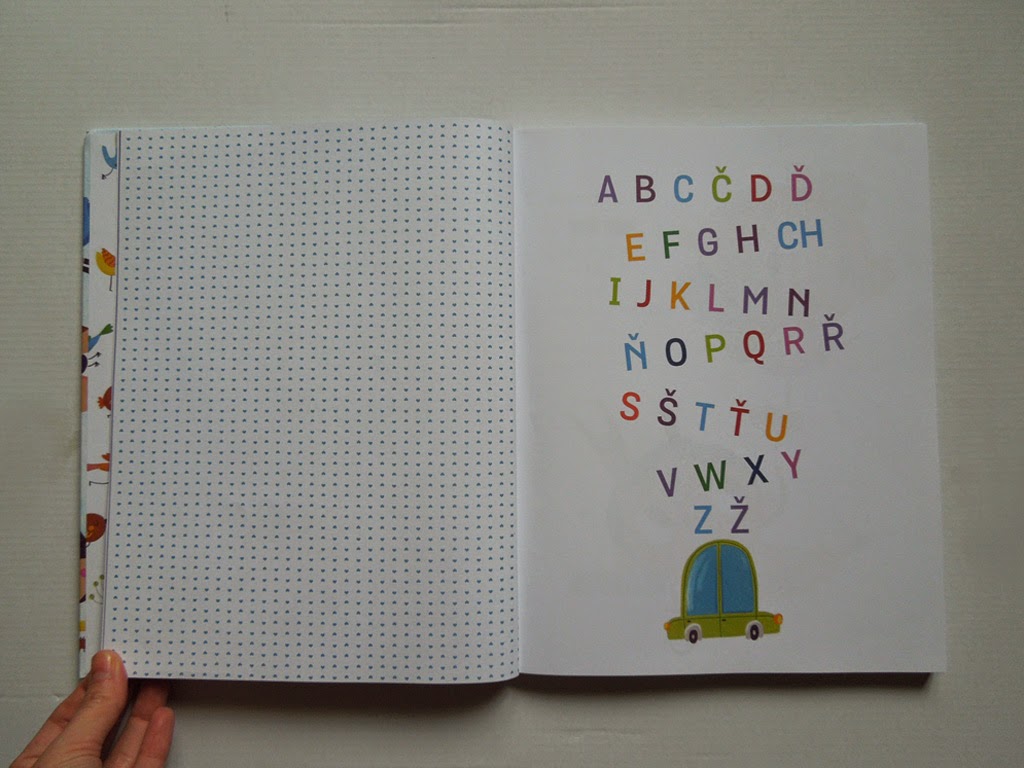 A B C Č D Ď
E F G H CH
I J K L M N
Ň O P Q R Ř
S Š T Ť U
V W X Y
Z Ž